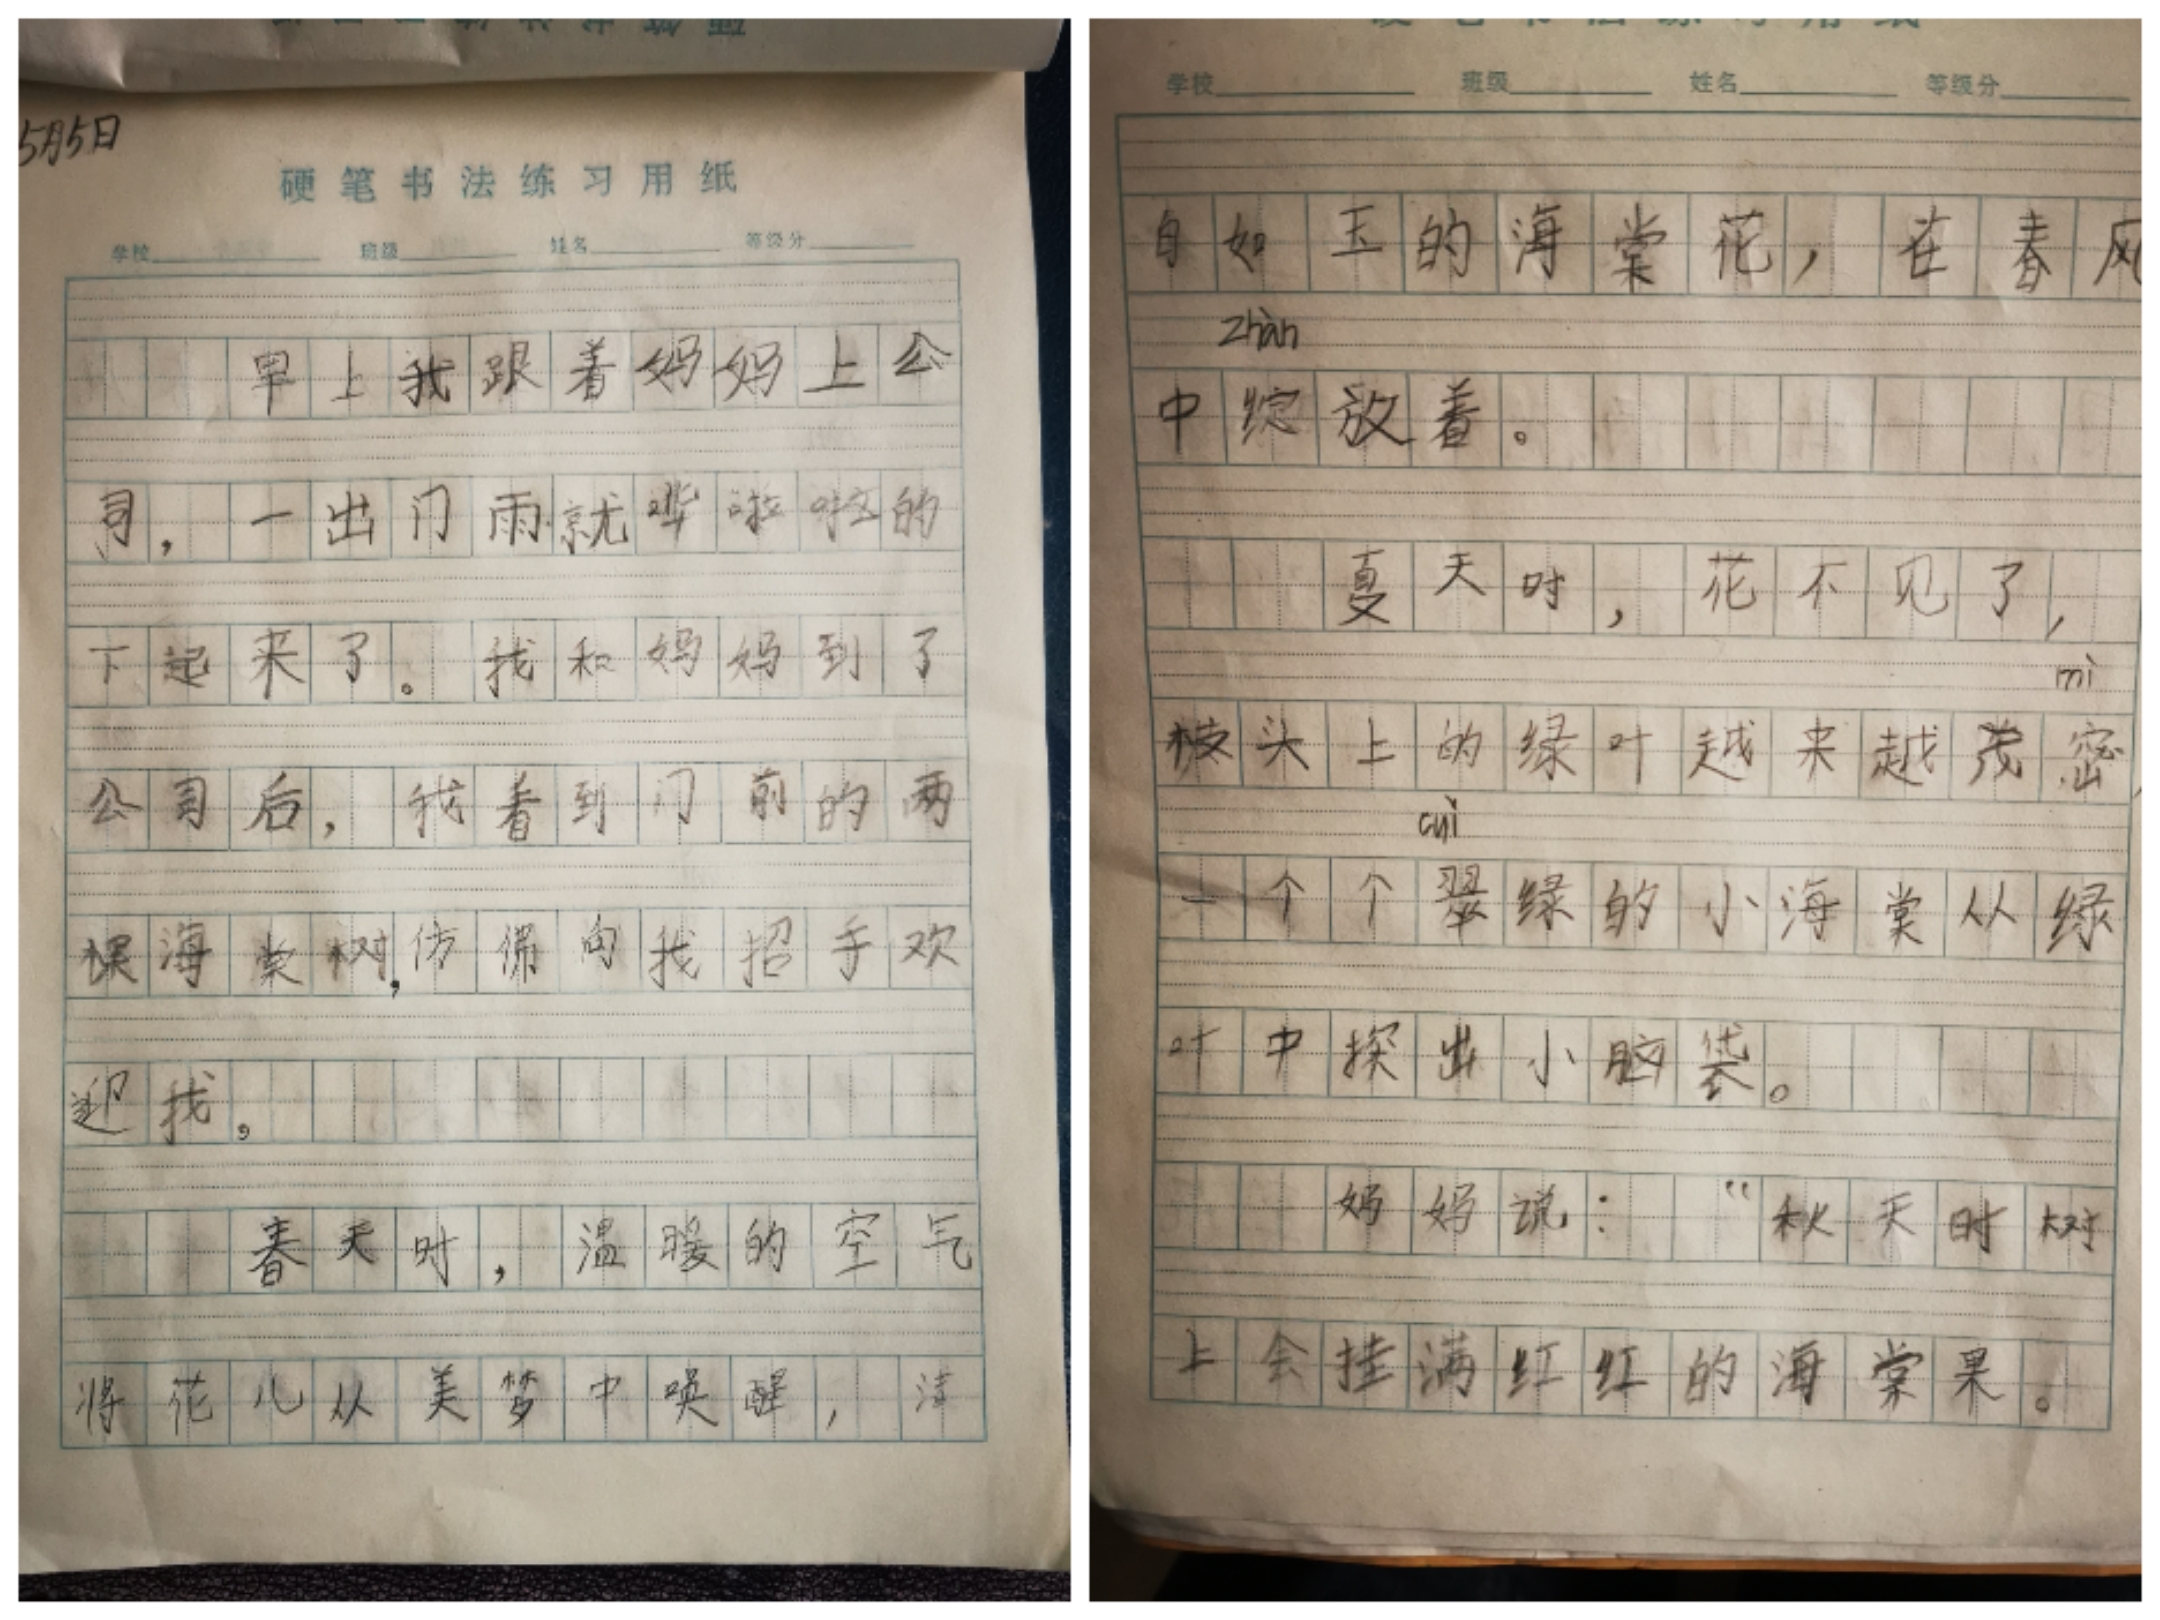 5月5日
硬笔书法练习用纸
学校 班级 姓名 等级分
早上我跟着妈妈上公
司，一出门雨就哗啦啦的
下起来了。我和妈妈到了
公司后，我看到门前的两
棵海棠树，仿佛向我招手欢
迎我。
春天时，温暖的空气
将花儿从美梦中唤醒，洁
硬笔书法练习用纸
学校 班级 姓名 等级分
自如玉的海棠花，在春风
zhàn
中绽放着。
夏天时，花不见了，
mì
枝头上的绿叶越来越茂密，
cuì
一个个翠绿的小海棠从绿
叶中探出小脑袋。
妈妈说：“秋天时树
上会挂满红红的海棠果。